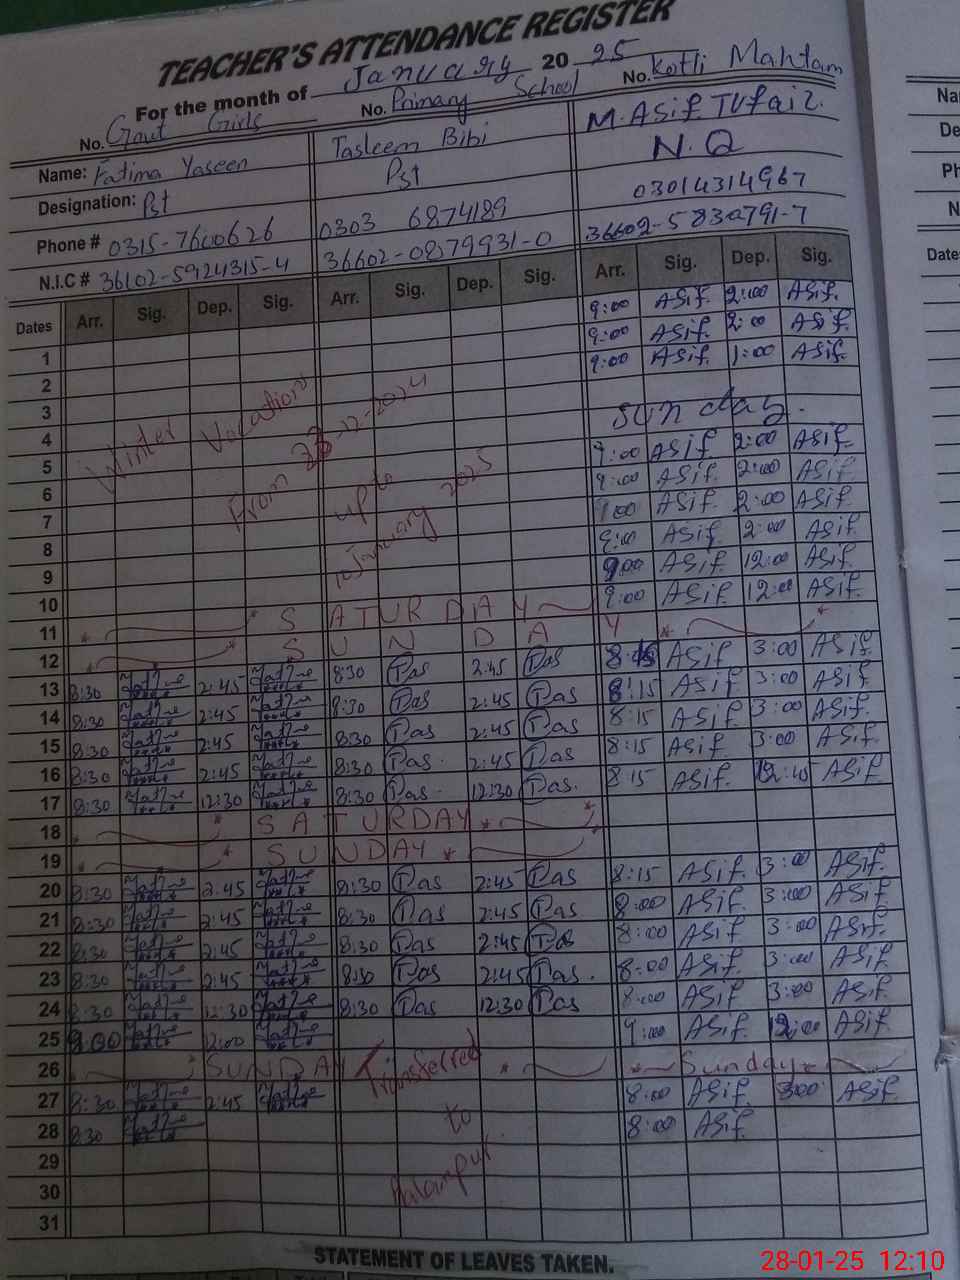 TEACHER'S ATTENDANCE REGISTER
For the month of January 2025
No. Govt Girls No. Primary School No. Kotli Mahtam
Name: Fatima Yaseen Tasleem Bibi M. Asif Tufail.
Designation: Pst Pst N.Q
Phone # 0315-7600626 0303 6874189 03014314967
N.I.C # 36102-5924315-4 36602-0879931-0 36602-5830791-7
Dates Arr. Sig. Dep. Sig. Arr. Sig. Dep. Sig. Arr. Sig. Dep. Sig.
9:00 ASif. 2:00 ASif.
1 9:00 ASif. 2:00 ASif.
2 9:00 ASif. 1:00 ASif.
3
4 Sunday.
5 9:00 ASif 2:00 ASif
6 9:00 ASif. 2:00 ASif.
7 9:00 ASif. 2:00 ASif.
8 9:00 ASif. 2:00 ASif.
9 9:00 ASif. 12:00 ASif.
10 9:00 ASif. 12:00 ASif.
Winter Vacation
From 23-12-2024
upto
January 2025
11 SATURDAY
12 SUNDAY 8:15 ASif 3:00 ASif
13 8:30 2:45 8:30 Das 2:45 Das 8:15 ASif 3:00 ASif
14 8:30 2:45 8:30 Das 2:45 Das 8:15 ASif. 3:00 ASif.
15 8:30 2:45 8:30 Das 2:45 Das 8:15 ASif. 3:00 ASif.
16 8:30 2:45 8:30 Das. 2:45 Das 8:15 ASif. 12:15 ASif.
17 8:30 12:30 8:30 Das. 12:30 Das.
18 SATURDAY
19 SUNDAY
20 8:30 2:45 8:30 Das 2:45 Das 8:15 ASif. 3:00 ASif.
21 8:30 2:45 8:30 Das 2:45 Das 8:00 ASif. 3:00 ASif.
22 8:30 2:45 8:30 Das 2:45 Das 8:00 ASif. 3:00 ASif.
23 8:30 2:45 8:30 Das 2:45 Das. 8:00 ASif. 3:00 ASif.
24 8:30 12:30 8:30 Das 12:30 Das 8:00 ASif 3:00 ASif.
25 9:00 12:00 9:00 ASif. 12:00 ASif.
26 SUNDAY Sunday
27 8:30 2:45 8:00 ASif. 3:00 ASif.
28 8:30 8:00 ASif.
Transferred
to
29
30
31
STATEMENT OF LEAVES TAKEN.
Na
De
Ph
N
Dates
28-01-25 12:10